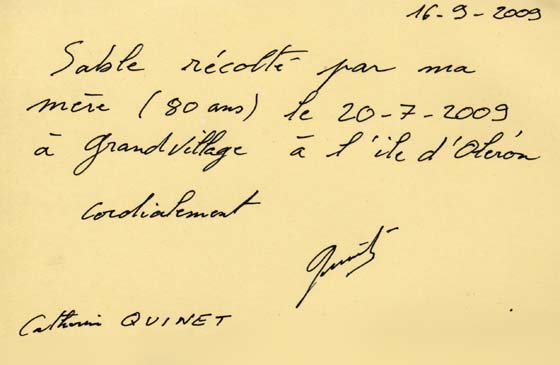 16-9-2009
Sable récolté par ma
mère (80 ans) le 20-7-2009
à Grand Village à l'île d'Oléron
Cordialement
Catherine QUINET